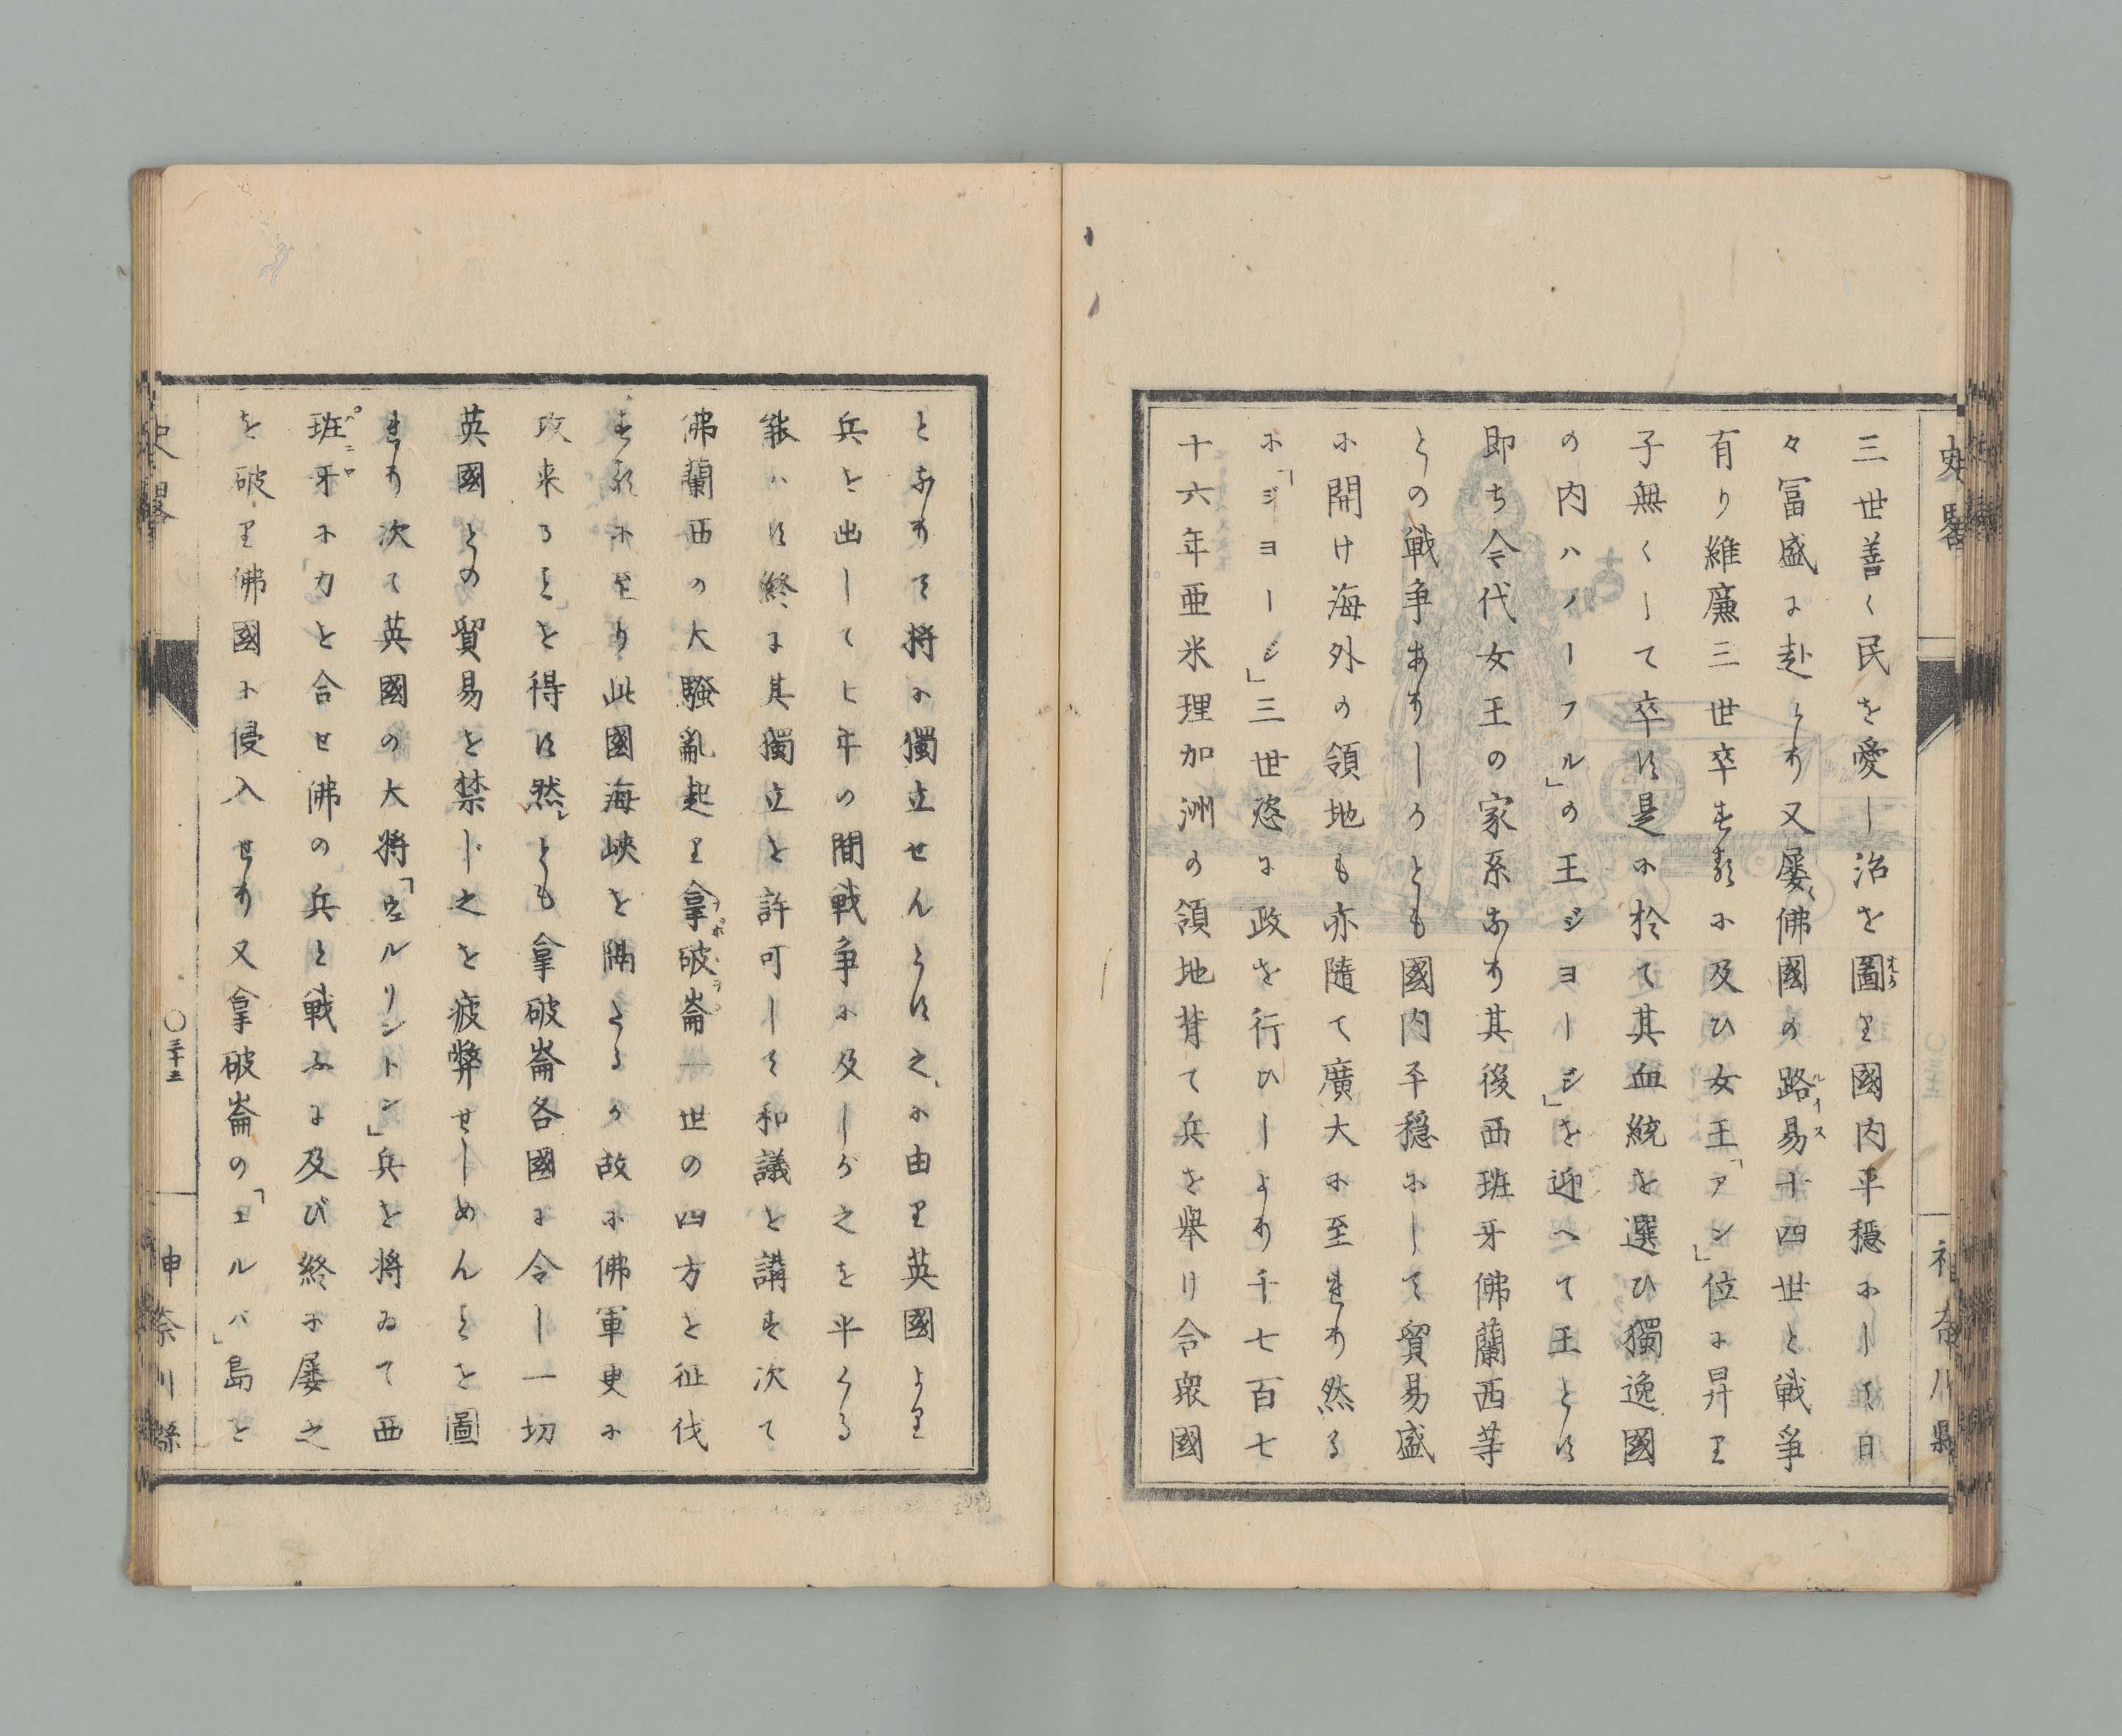 史略
神奈川縣
三世善く民を愛し治を圖り國内平穏にして日
々冨盛に赴けり又屡佛國の路易十四世と戦爭
有り維廉三世卒する に及ひ女王「アン」位に昇り
子無くして卒す是に於て其血統を選ひ獨逸國
の内ハノーフル」の王ジヨージ」を迎へて王とす
即ち今代女王の家系なり其後西班牙佛蘭西等
との戦争ありしかとも國内平穏にして貿易盛
に開け海外の領地も亦隨て廣大に至れり然る
に「ジヨージ」三世恣に政を行ひしより千七百七
十六年亜米理加洲の領地背て兵を舉け合衆國
となりて将に獨立せんとす之に由り英國より
兵を出して七年の間戦争に及しが之を平くる
能ハす終に其獨立を許可して和議を講す次て
佛蘭西の大騒亂起り拿破崙一世の四方を征伐
する に至り此國海峡を隔たるか故に佛軍更に
攻来ること」を得す然レとも拿破崙各國に令し一切
英國との貿易を禁じ之を疲弊せしめんことを圖
れり次て英國の大将「ウエルリントン」兵を将ゐて西
班牙に力を合せ佛の兵と戦ふに及び終に屡之
を破り佛國に侵入せり又拿破崙の「エルバ」島を
史畧
〇三十三
神奈川縣